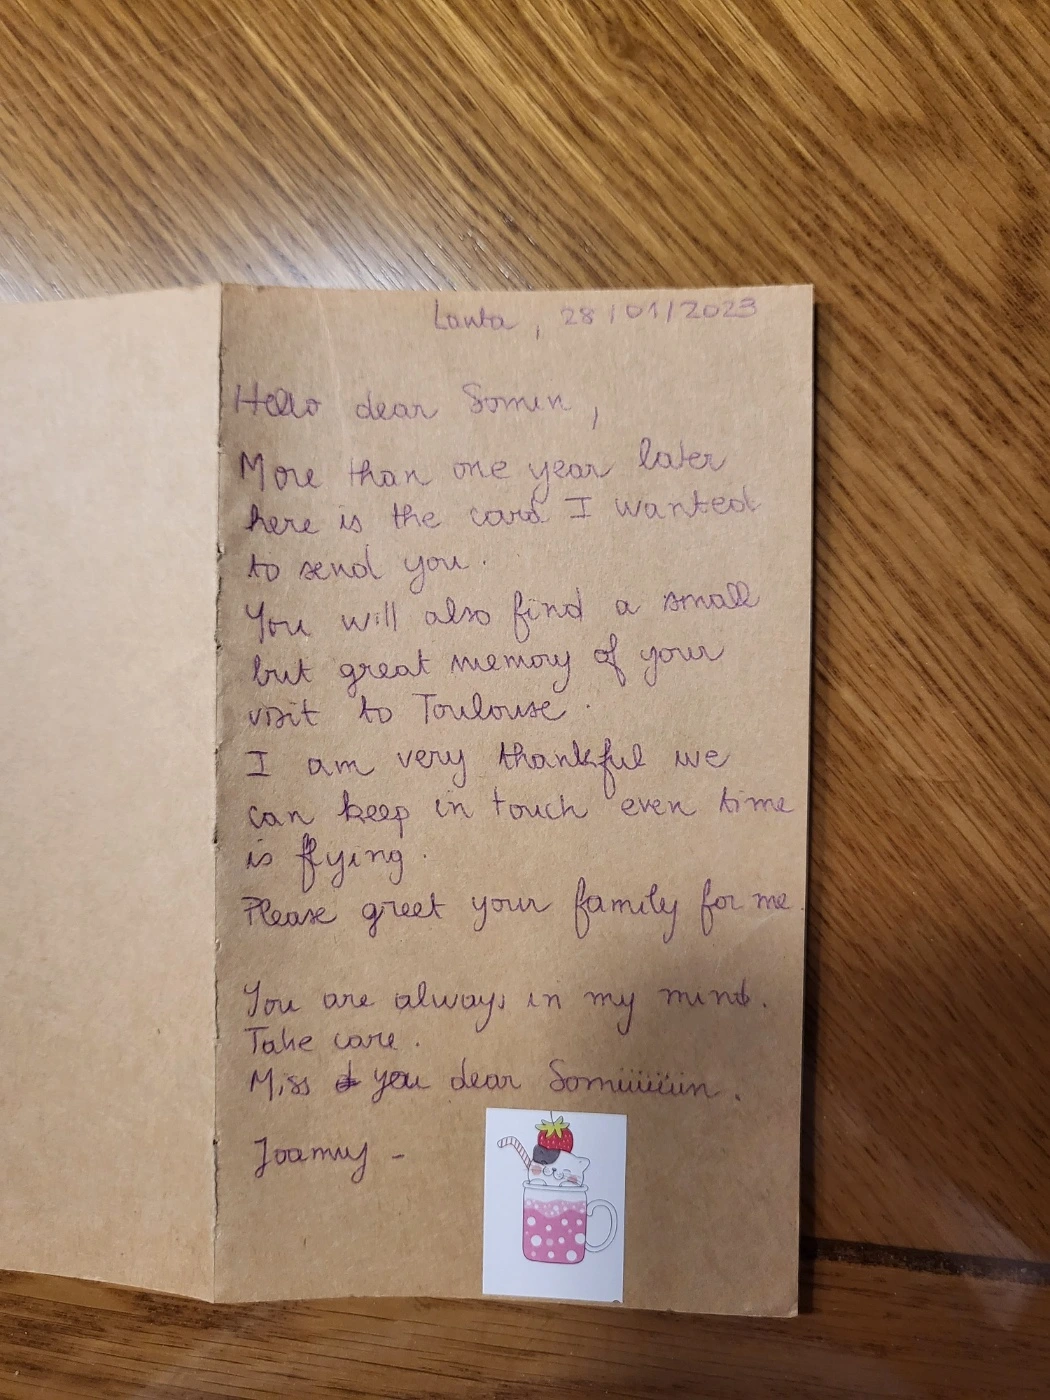 Lanta, 28/01/2023
Hello dear Somin,
More than one year later
here is the card I wanted
to send you.
You will also find a small
but great memory of your
visit to Toulouse.
I am very thankful we
can keep in touch even time
is flying.
Please greet your family for me.
You are always in my mind.
Take care.
Miss you dear Somiiiiiin.